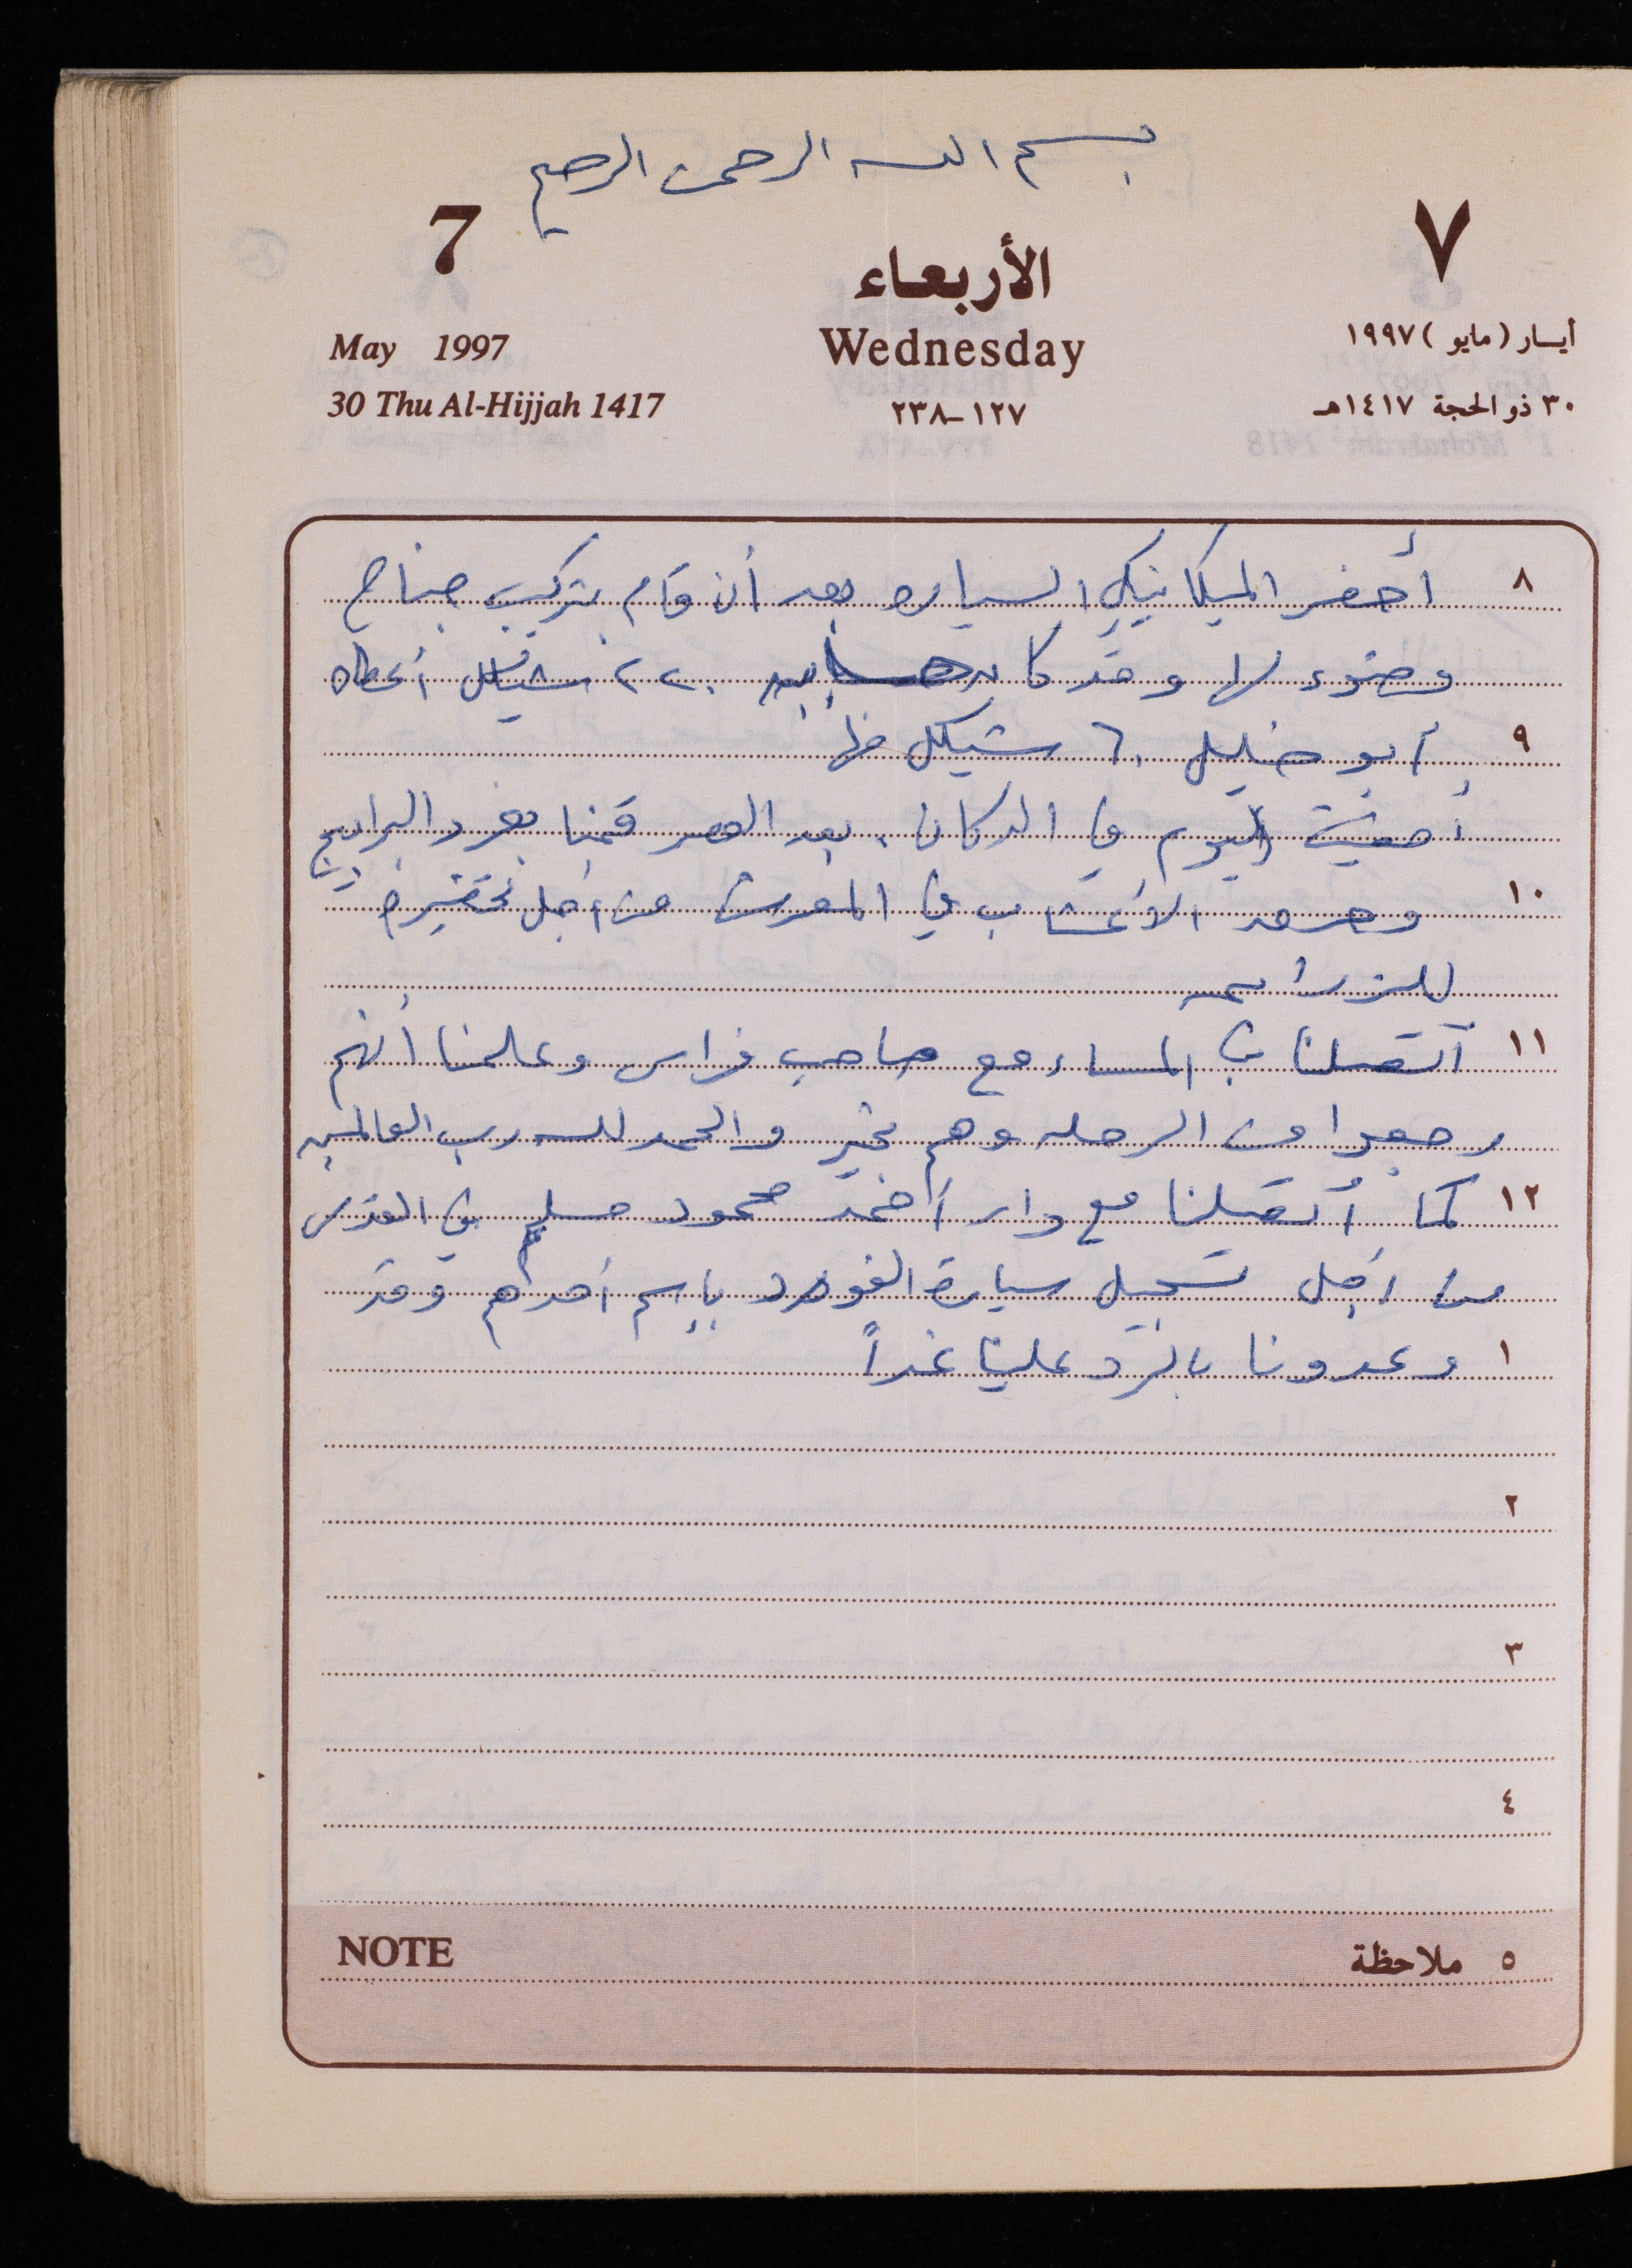 بسم الله الرحمن الرحيم
7
الأربعاء
٧
May 1997
Wednesday
أيسار (مايو) ١٩٩٧
30 Thu Al-Hijjah 1417
١٢٧-٢٣٨
٣٠ ذو الحجة ١٤١٧هـ
٨ أحضر الميكانيكي السياره بعد أن قام بتركيب جناح
وضوء لها وقد كان حسابه ٢٢٠ شيكل أعطاه
٩ أبو خليل ٦٠ شيكل منها
أمضيت اليوم في الدكان، بعد العصر قمنا بفرد البرابيج
١٠ في المعرش من أجل تحضيره
للزراعه
١١ اتصلنا في المساء مع صاحب فراس وعلمنا أنهم
رجعوا من الرحله وهم بخير والحمد لله رب العالمين
١٢ كما أتصلنا مع دار أحمد محمود مسلم في القدس
من أجل تسجيل سيارة الفورد بإسم أحدهم وقد
١ وعدونا بالرد علينا غداً
٢
٣
٤
NOTE
٥ ملاحظة